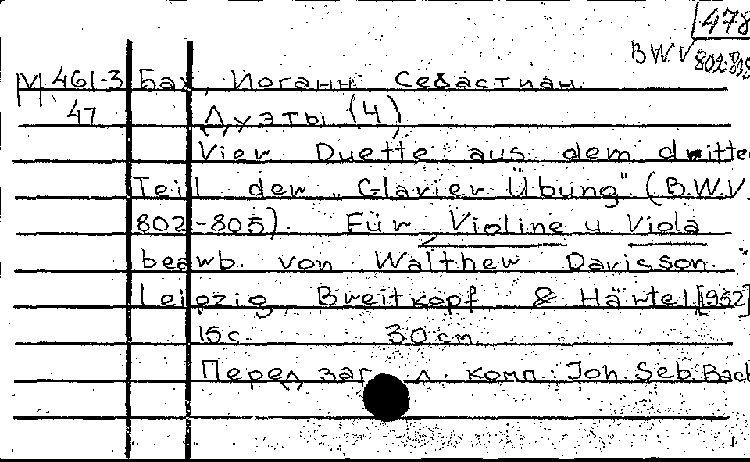 478
B.W.V 802-805
М 461-3 Бах, Иоганн Себастиан.
47 Дуэты (4)
Vier Duette aus dem dritte
Teil der "Clavier Übung" (B.W.V.
802-805). Für Violine u Viola
bearb. von Walther Davisson.
Leipzig, Breitkopf & Härtel, [952]
15 с. 30 см
Перед заг л. комп.: Joh. Seb. Bach